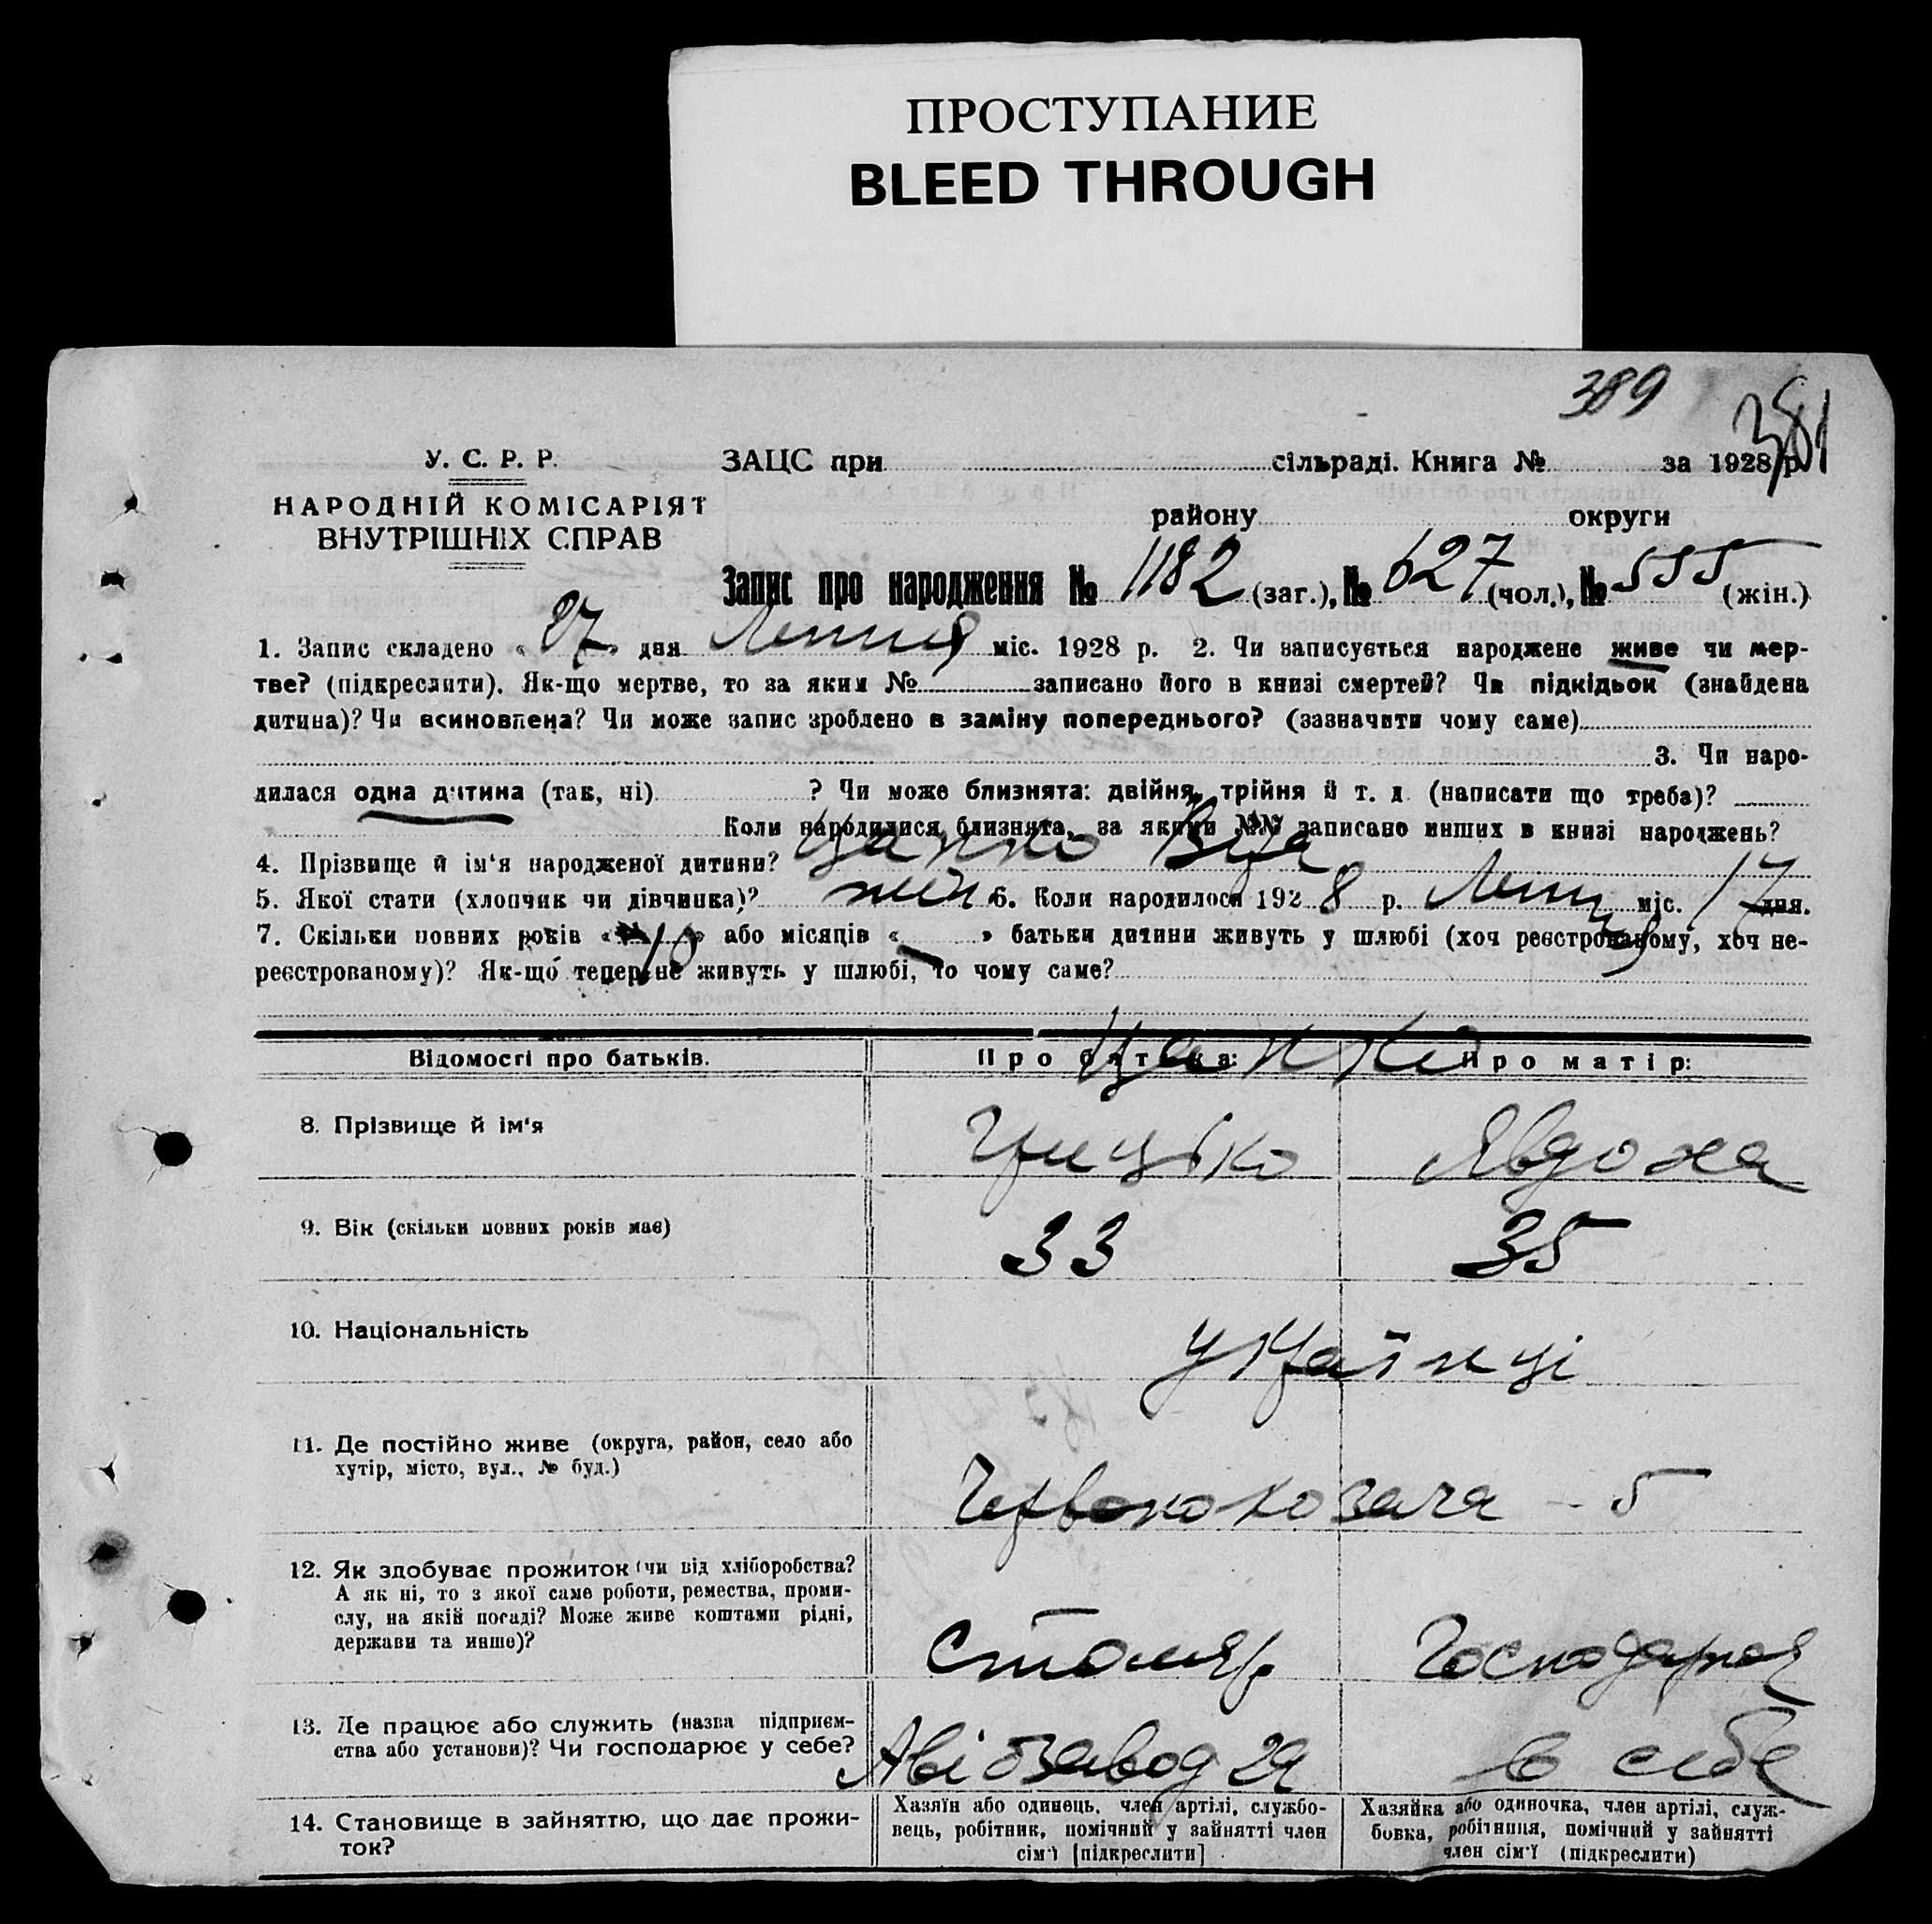 ПРОСТУПАНИЕ
BLEED THROUGH
389
381
У. С. Р. Р.
НАРОДНІЙ КОМІСАРІЯТ
ВНУТРІШНІХ СПРАВ
ЗАЦС при сільраді. Книга № за 1928 р.
району округи
Запис про народження № 1182 (заг.), № 627 (чол.), № 555 (жін.)
1. Запис складено « 27 » дня Липня міс. 1928 р. 2. Чи записується народжене живе чи мер-
тве? (підкреслити). Як-що мертве, то за яким № записано його в книзі смертей? Чи підкідьок (знайдена
дитина)? Чи всиновлена? Чи може запис зроблено в заміну попереднього? (зазначити чому саме)
3. Чи наро-
дилася одна дитина (так, ні) ? Чи може близнята: двійня, трійня й т. д. (написати що треба)?
Коли народилися близнята, за якими №№ записано инших в книзі народжень?
4. Прізвище й ім'я народженої дитини? Цапко Віра
5. Якої стати (хлопчик чи дівчинка)? жін 6. Коли народилося 1928 р. Липня міс. 17 дня.
7. Скільки повних років « 10 » або місяців « — » батьки дитини живуть у шлюбі (хоч реєстрованому, хоч не-
реєстрованому)? Як-що тепер не живуть у шлюбі, то чому саме?
Відомості про батьків. Про батька: Про матір:
Цапко
8. Прізвище й ім'я Грицько Явдоха
9. Вік (скільки повних років має) 33 35
10. Національність українці
11. Де постійно живе (округа, район, село або
хутір, місто, вул., № буд.)
Червонокозача - 5
12. Як здобуває прожиток (чи від хліборобства?
А як ні, то з якої саме роботи, ремества, проми-
слу, на якій посаді? Може живе коштами рідні,
держави та инше)?
Столяр Господарка
13. Де працює або служить (назва підприєм-
ства або установи)? Чи господарює у себе?
Авіозавод 29 в себе
14. Становище в зайняттю, що дає прожи-
ток?
Хазяїн або одинець, член артілі, службо-
вець, робітник, помічний у зайнятті член
сім'ї [підкреслити]
Хазяйка або одиночка, член артілі, служ-
бовка, робітниця, помічний у зайнятті
член сім'ї (підкреслити)